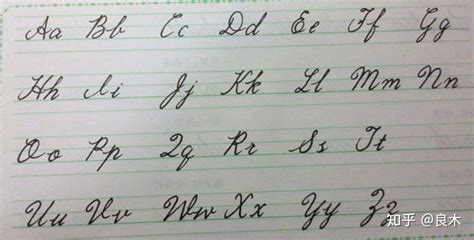 Aa Bb Cc Dd Ee Ff Gg
Hh Ii Jj Kk Ll Mm Nn
Oo Pp Qq Rr Ss Tt
Uu Vv Ww Xx Yy Zz
知乎 @良木